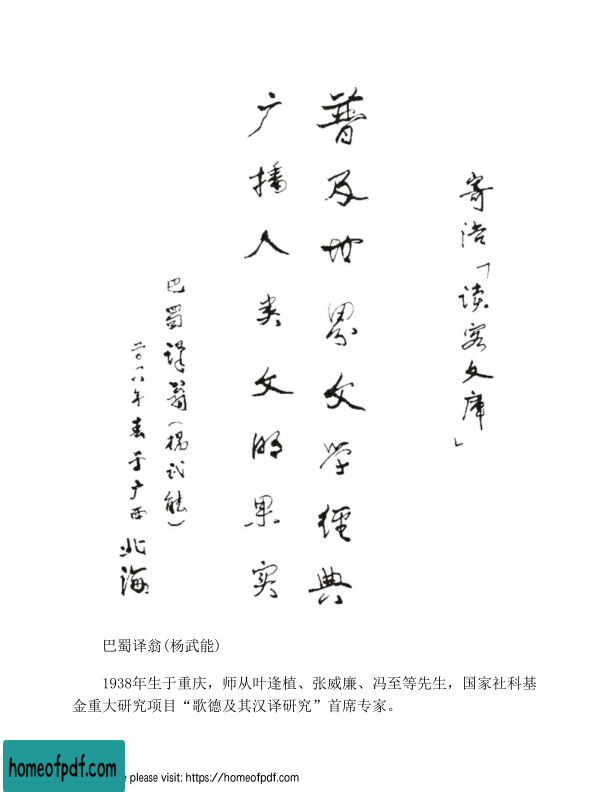 寄语「读客文库」
普及世界文学经典
广播人类文明果实
巴蜀译翁(杨武能)
二〇一八年春于广西北海
巴蜀译翁(杨武能)
1938年生于重庆，师从叶逢植、张威廉、冯至等先生，国家社科基
金重大研究项目“歌德及其汉译研究”首席专家。
homeofpdf.com
e please visit: https://homeofpdf.com